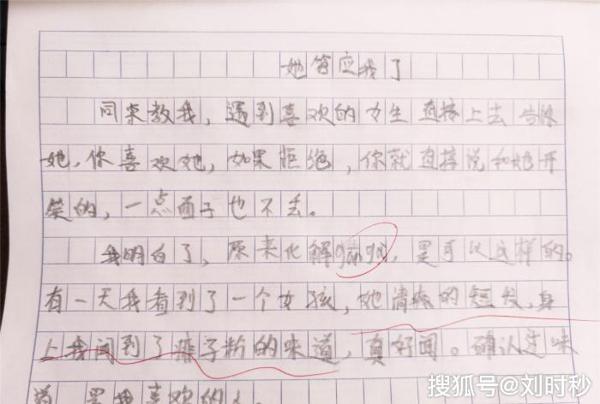 她答应我了
同桌教我，遇到喜欢的女生直接上去告诉
她，你喜欢她，如果拒绝，你就直接说和她开
笑的，一点面子也不丢。
我明白了，原来化解，是可以这样的。
有一天我看到了一个女孩，她清爽的短发，身
上我闻到了痱子粉的味道，真好闻。确认过味
道，是我喜欢的。
搜狐号@刘时秒